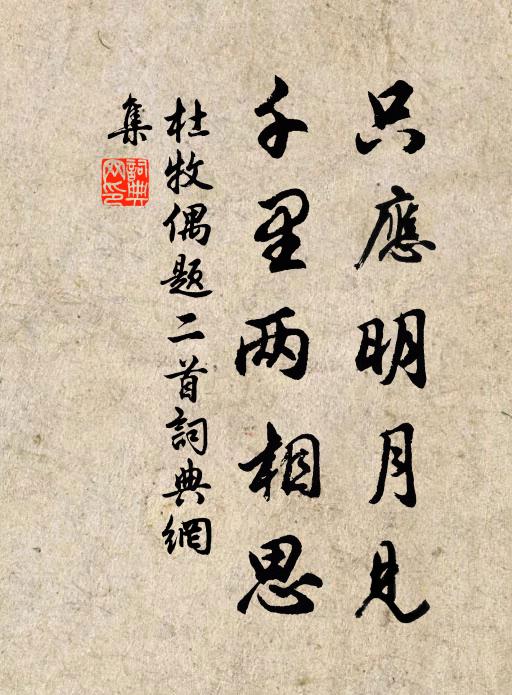 只應明月見
千里两相思
杜牧偶题二首詞典網
集
詞典
网印